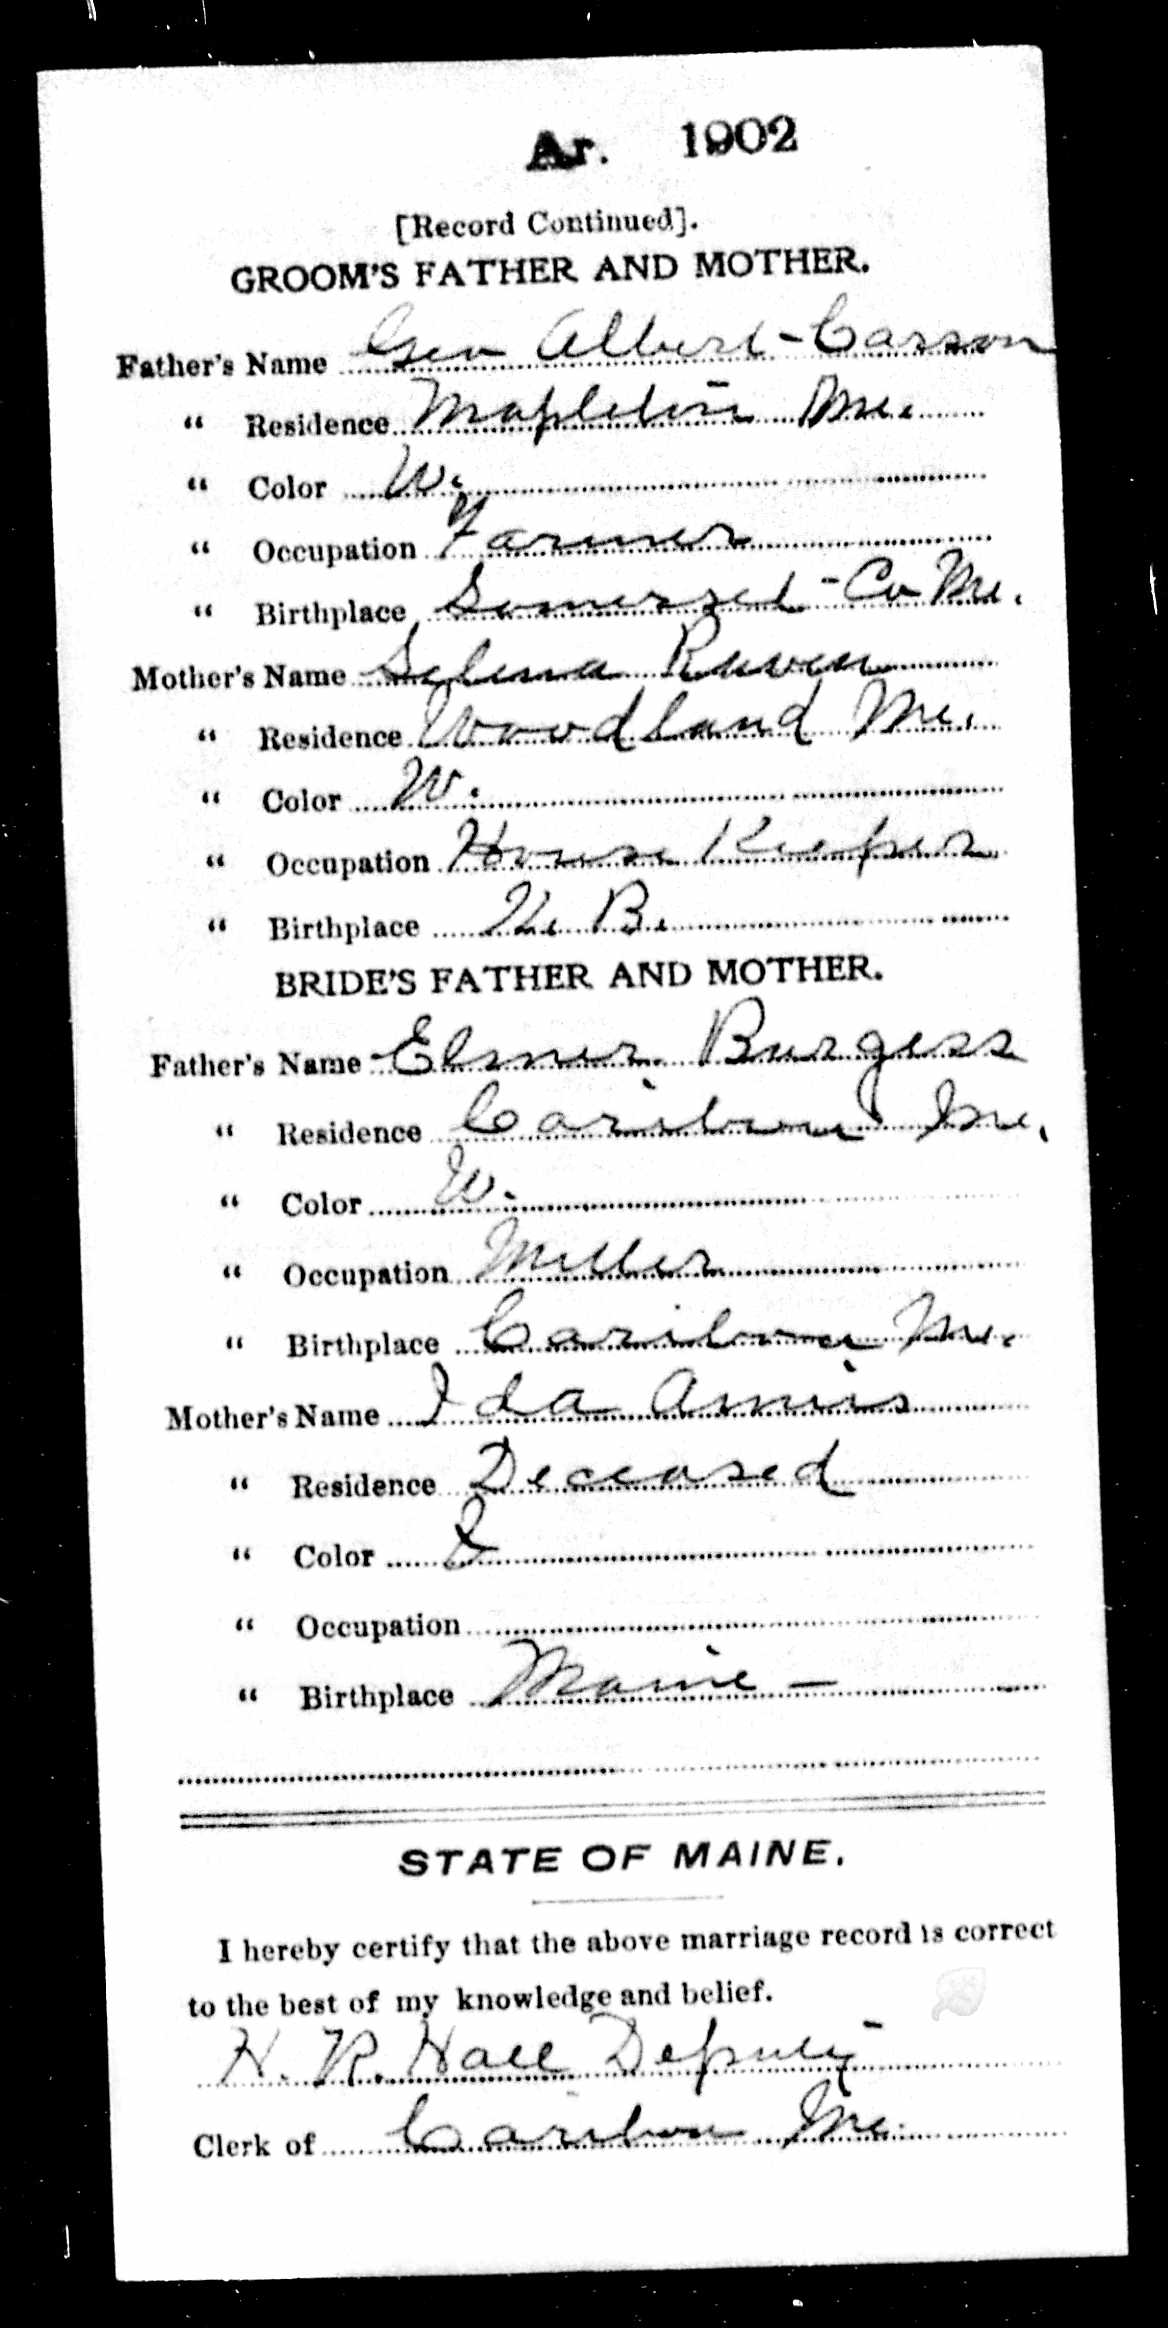 Ar. 1902
[Record Continued].
GROOM'S FATHER AND MOTHER.
Father's Name Geo Albert-Carson
" Residence Mapleton Me.
" Color W.
" Occupation Farmer
" Birthplace Somerset-Co Me.
Mother's Name Selena
" Residence Woodland Me.
" Color W.
" Occupation House Keeper
" Birthplace N. B.
BRIDE'S FATHER AND MOTHER.
Father's Name Elmer Burgess
" Residence Caribou Me.
" Color W.
" Occupation Miller
" Birthplace Caribou Me.
Mother's Name Ida
" Residence Deceased
" Color
" Occupation
" Birthplace Maine -
STATE OF MAINE.
I hereby certify that the above marriage record is correct
to the best of my knowledge and belief.
H. R. Hall Deputy
Clerk of Caribou Me.